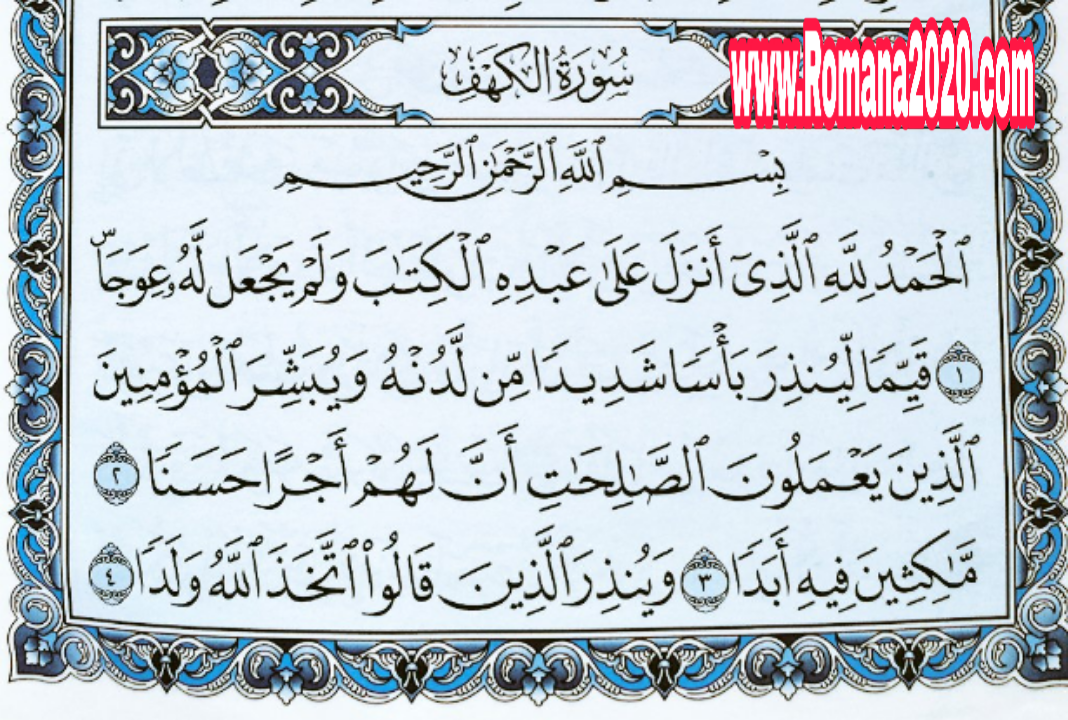 سُورَةُ الكَهْفِ
www.Romana2020.com
بِسْمِ ٱللَّهِ ٱلرَّحْمَٰنِ ٱلرَّحِيمِ
ٱلْحَمْدُ لِلَّهِ ٱلَّذِىٓ أَنزَلَ عَلَىٰ عَبْدِهِ ٱلْكِتَٰبَ وَلَمْ يَجْعَل لَّهُۥ عِوَجَاۜ
١ قَيِّمًا لِّيُنذِرَ بَأْسًا شَدِيدًا مِّن لَّدُنْهُ وَيُبَشِّرَ ٱلْمُؤْمِنِينَ
ٱلَّذِينَ يَعْمَلُونَ ٱلصَّٰلِحَٰتِ أَنَّ لَهُمْ أَجْرًا حَسَنًا ٢
مَّٰكِثِينَ فِيهِ أَبَدًا ٣ وَيُنذِرَ ٱلَّذِينَ قَالُوا۟ ٱتَّخَذَ ٱللَّهُ وَلَدًا ٤